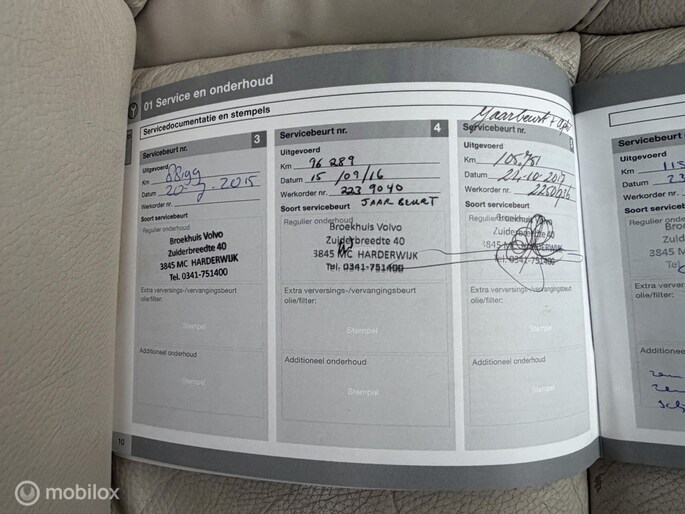 01 Service en onderhoud
Servicedocumentatie en stempels
Servicebeurt nr. 3
Uitgevoerd
Km 88199
Datum 20-7-2015
Werkorder nr.
Soort servicebeurt
Regulier onderhoud
Broekhuis Volvo
Zuiderbreedte 40
3845 MC HARDERWIJK
Tel. 0341-751400
Extra verversings-/vervangingsbeurt
olie/filter:
Stempel
Additioneel onderhoud
Stempel
10
Servicebeurt nr. 4
Uitgevoerd
Km 96289
Datum 15/09/16
Werkorder nr. 2239040
Soort servicebeurt JAARBEURT
Regulier onderhoud
Broekhuis Volvo
Zuiderbreedte 40
3845 MC HARDERWIJK
Tel. 0341-751400
Extra verversings-/vervangingsbeurt
olie/filter:
Stempel
Additioneel onderhoud
Stempel
Servicebeurt nr.
Uitgevoerd
Km 105.751
Datum 24-10-2017
Werkorder nr.
Soort servicebeurt
Regulier onderhoud
Broekhuis Volvo
Zuiderbreedte 40
3845 MC HARDERWIJK
Tel. 0341-751400
Extra verversings-/vervangingsbeurt
olie/filter:
Stempel
Additioneel onderhoud
Stempel
Servicebeurt
Uitgevoerd
Km 115
Datum
Werkorder
Soort serviceb
Regulier onde
Extra verversing
olie/filter:
Additioneel
mobilox